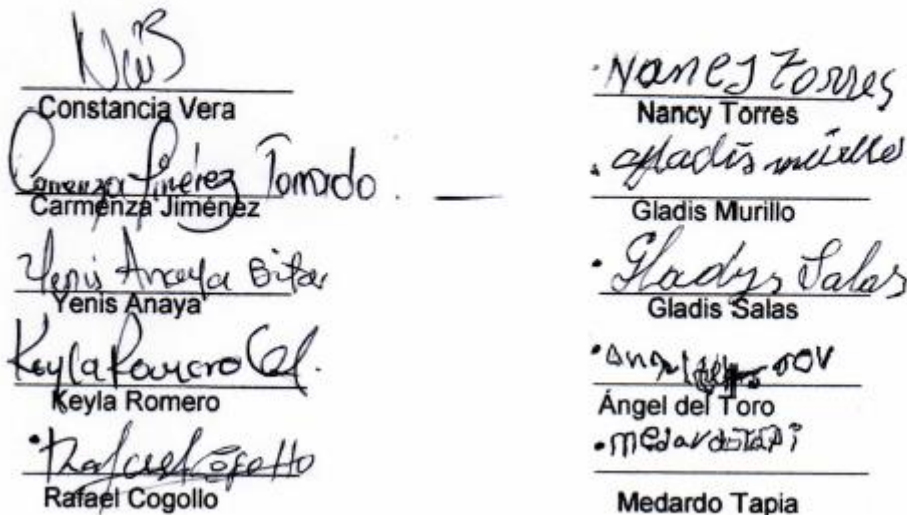 Constancia Vera
Carmenza Jiménez
Carmenza Jiménez
Yenis Anaya
Yenis Anaya
Keyla Romero
Keyla Romero
Rafael Cogollo
Rafael Cogollo
Nancy Torres
Nancy Torres
Gladis Murillo
Gladis Murillo
Gladys Salas
Gladis Salas
Ángel del Toro
Medardo Tapia